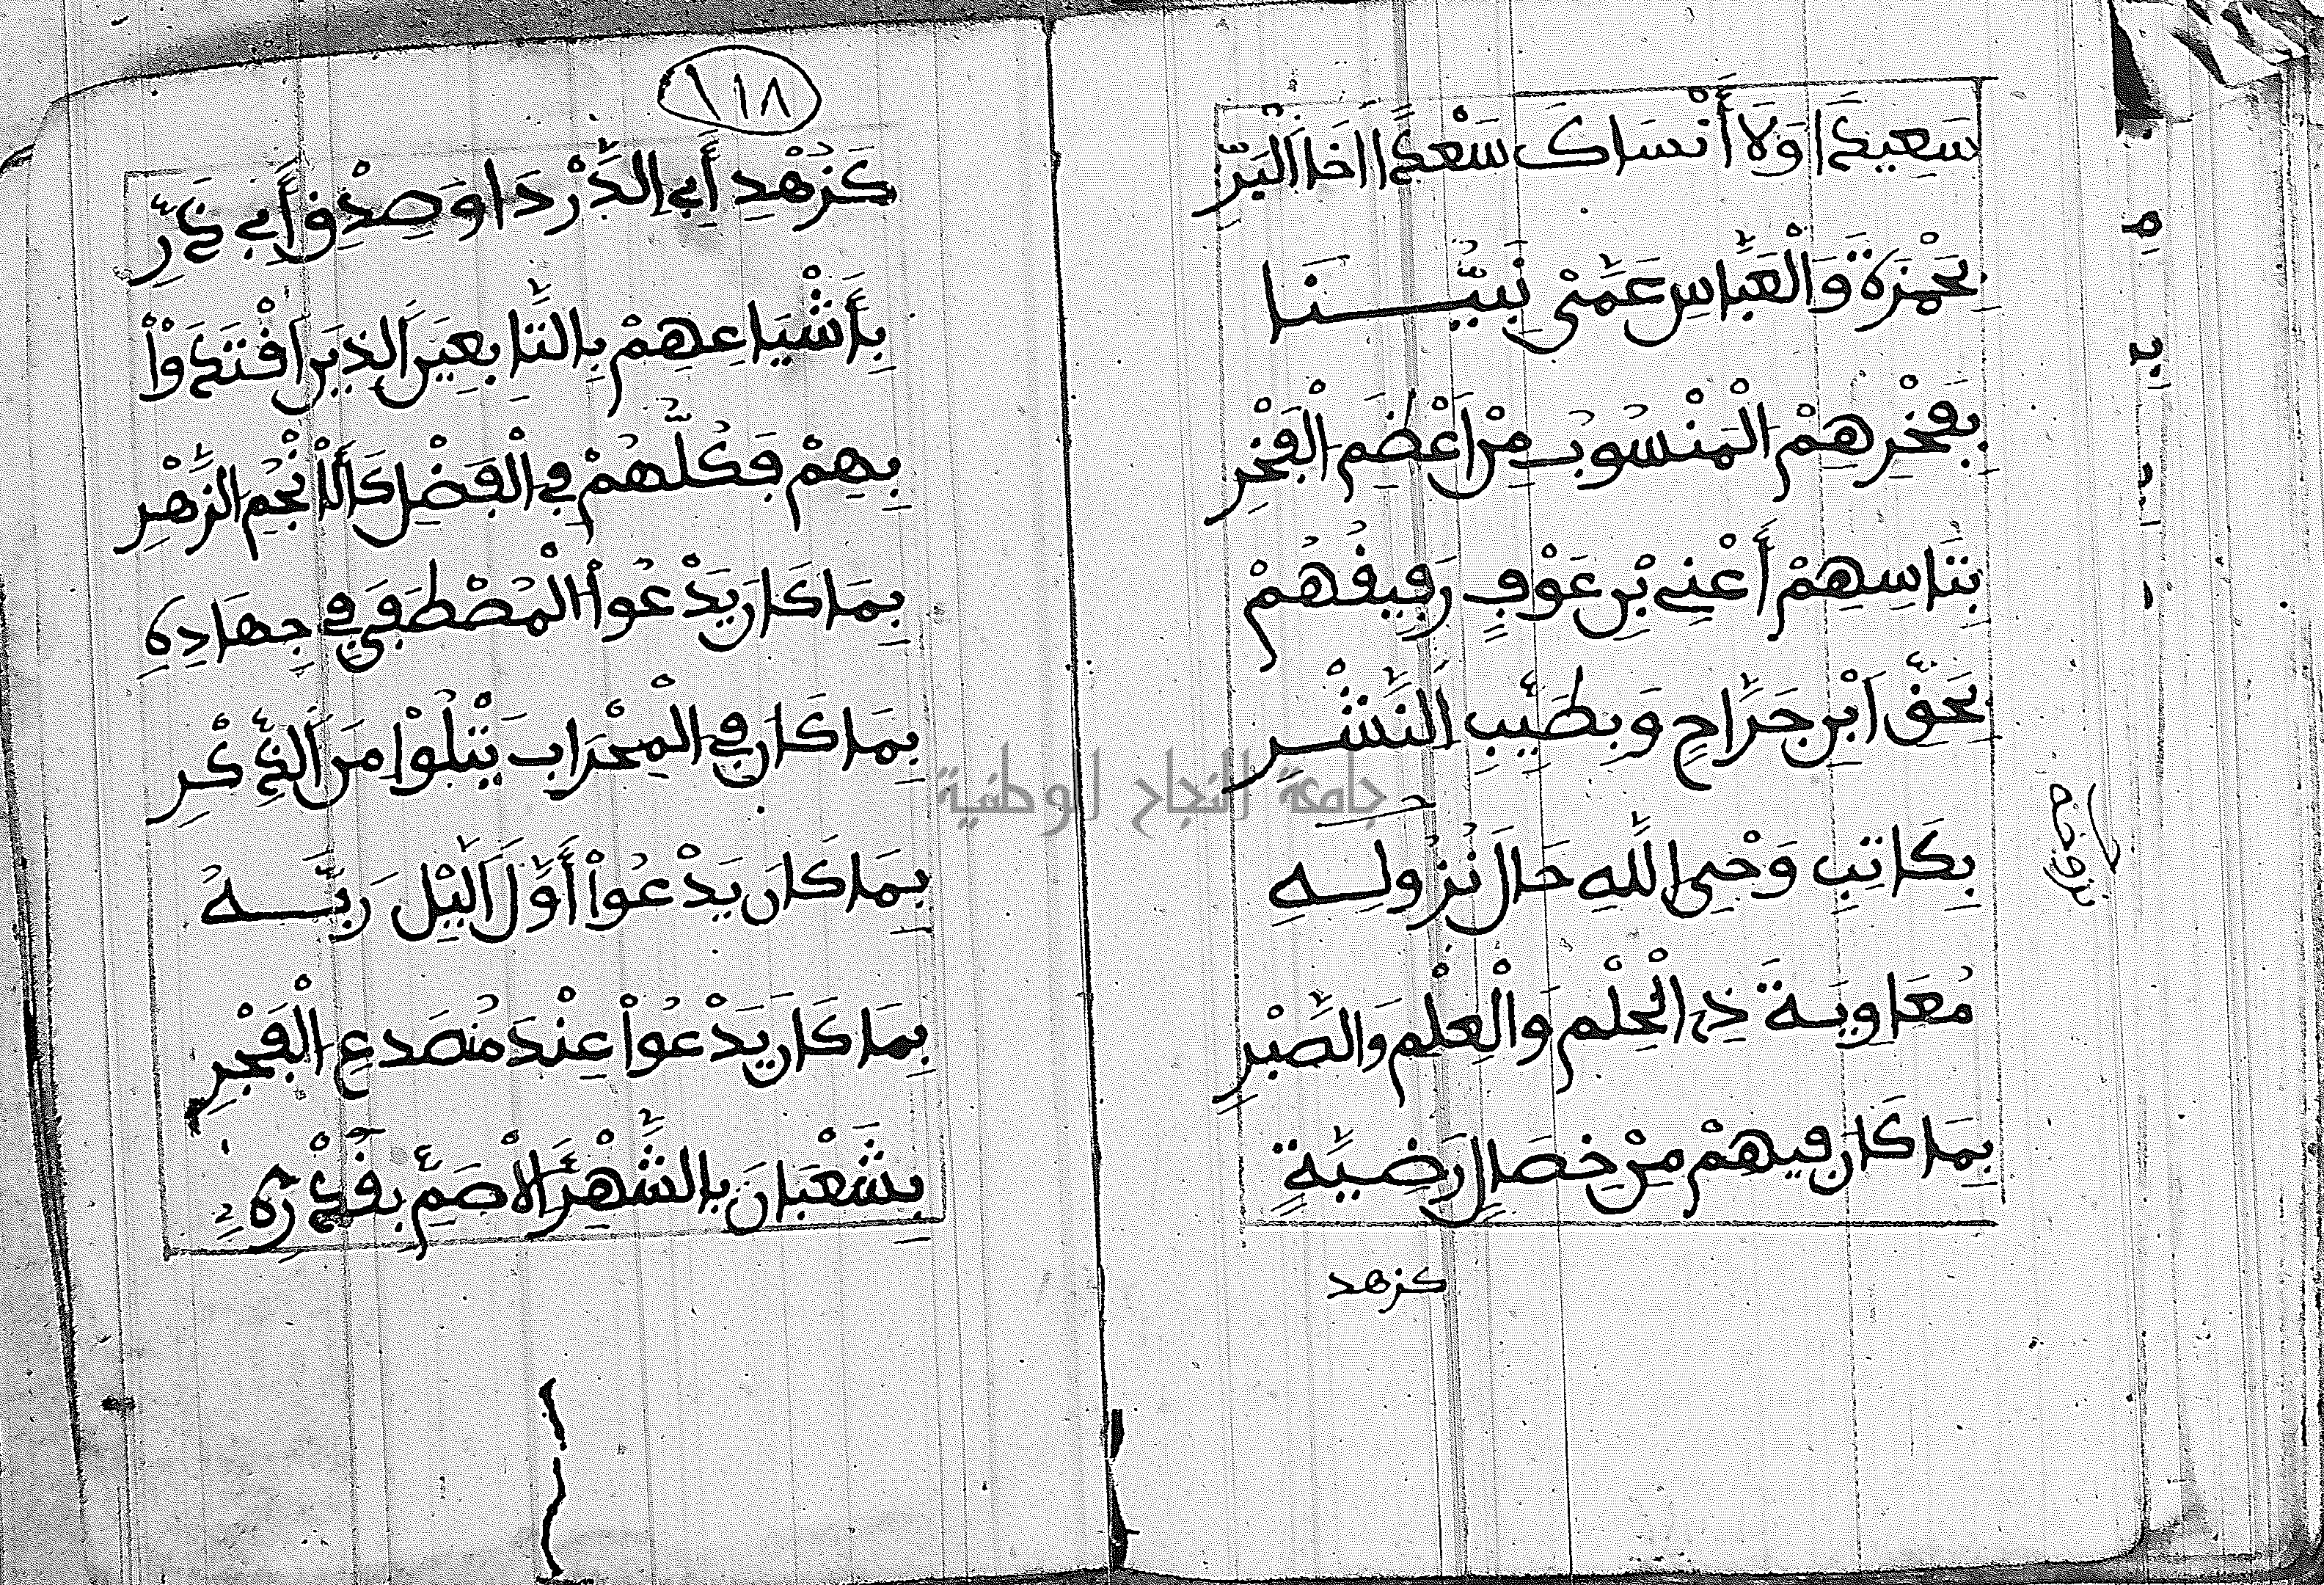 سَعِيدًا وَلَا أَنْسَاكَ سَعْدًا اَخَا الْبِرِّ
بِحَمْزَةَ وَالْعَبَّاسِ عَمَّيْ نَبِيِّنَا
بِفَخْرِهِمُ الْمَنْسُوبُ مِنْ اَعْظَمِ الْفَخْرِ
بِتَاسِهِمْ أَعْنِي بْنِ عَوْفٍ رَفِيقُهُمْ
بِحَقِّ ابْنِ جَرَّاحٍ وَبِطَيِّبِ النَّشْرِ
بِكَاتِبِ وَحْيِ اللَّهِ حَالَ نُزُولِهِ
مُعَاوِيَةَ ذِي الْحِلْمِ وَالْعِلْمِ وَالصَّبْرِ
بِمَا كَانَ فِيهِمْ مِنْ خِصَالٍ رَضِيَّةٍ
كزهد
١١٨
كَزُهْدِ أَبِي الدَّرْدَا وَصِدْقِ أَبِي ذَرِّ
بِأَشْيَاعِهِمْ بِالتَّابِعِينَ الذِينَ اقْتَدَوْا
بِهِمْ فَكُلُّهُمْ فِي الْفَضْلِ كَالْأَنْجُمِ الزَّهْرِ
بِمَا كَانَ يَدْعُوا الْمُصْطَفَى فِي جِهَادِهِ
بِمَا كَانَ فِي الْمِحْرَابِ يَتْلُوا مِنَ الذِّكْرِ
بِمَا كَانَ يَدْعُوا أَوَّلَ اللَيْلِ رَبَّهُ
بِمَا كَانَ يَدْعُوا عِنْدَ مُنْصَدَعِ الْفَجْرِ
بِشَعْبَانَ بِالشَّهْرِ الْأَصَمِّ بِقَدْرِهِ
جامعة النجاح الوطنية